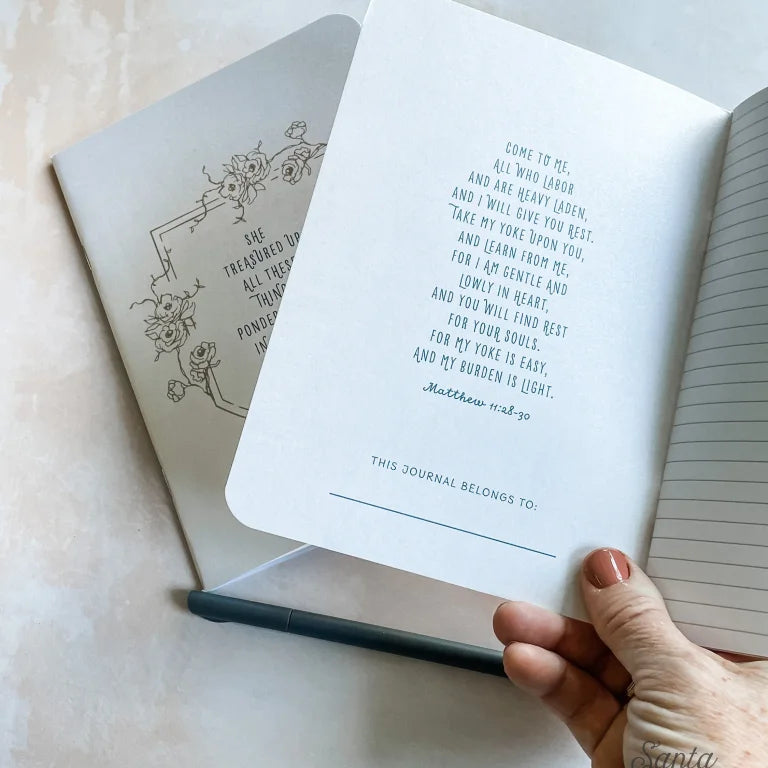 SHE
TREASURED UP
ALL THESE
THINGS
IN
COME TO ME,
ALL WHO LABOR
AND ARE HEAVY LADEN,
AND I WILL GIVE YOU REST.
TAKE MY YOKE UPON YOU,
AND LEARN FROM ME,
FOR I AM GENTLE AND
LOWLY IN HEART,
AND YOU WILL FIND REST
FOR YOUR SOULS.
FOR MY YOKE IS EASY,
AND MY BURDEN IS LIGHT.
Matthew 11:28-30
THIS JOURNAL BELONGS TO:
Santa